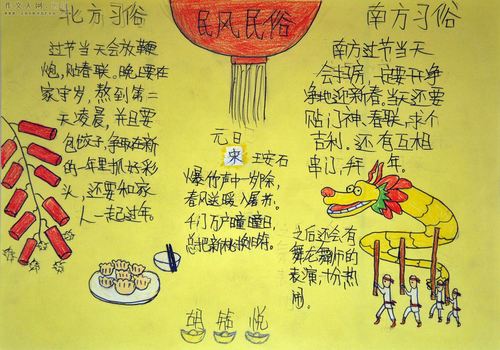 北方习俗
过节当天会放鞭
炮，贴春联。晚上要在
家守岁，熬到第二
天凌晨，并且要
包饺子，争取在新
的一年里抓好彩
头，还要和家
人一起过年。
民风民俗
元日
宋 王安石
爆竹声中一岁除，
春风送暖入屠苏。
千门万户曈曈日，
总把新桃换旧符。
南方习俗
南方过节当天
会扫房，一定要干净
净地迎新春。当天还要
贴门神、春联，求个
吉利。还有互相
串门，拜年。
之后还会有
舞龙舞狮的
表演，十分热
闹。